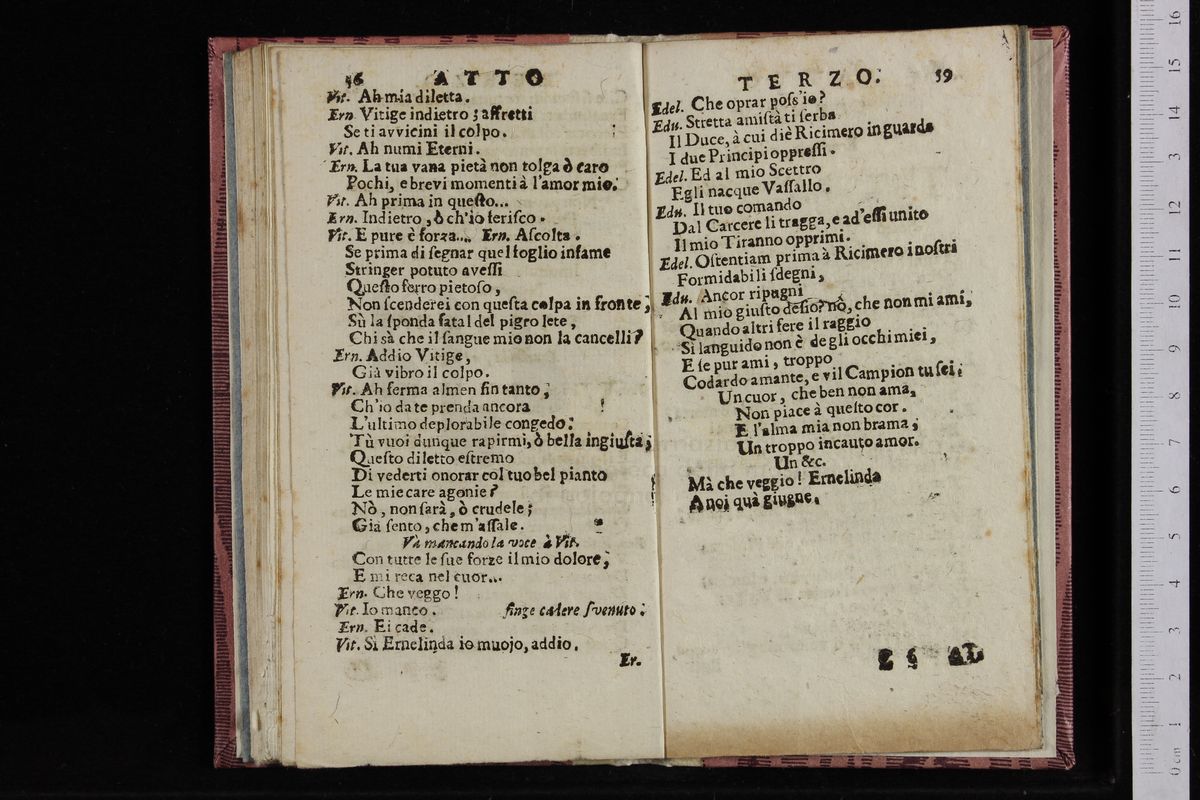 46 ATTO
Vit. Ah mia diletta.
Ern. Vitige indietro ; affretti
Se ti avvicini il colpo.
Vit. Ah numi Eterni.
Ern. La tua vana pietà non tolga ò caro
Pochi, e brevi momenti à l'amor mio.
Vit. Ah prima in queſto...
Ern. Indietro, ò ch'io feriſco.
Vit. E pure è forza.... Ern. Aſcolta.
Se prima di ſegnar quel foglio infame
Stringer potuto aveſſi
Queſto ferro pietoſo,
Non ſcenderei con queſta colpa in fronte;
Sù la ſponda fatal del pigro lete,
Chi sà che il ſangue mio non la cancelli?
Ern. Addio Vitige,
Già vibro il colpo.
Vit. Ah ferma almen fin tanto;
Ch'io da te prenda ancora
L'ultimo deplorabile congedo:
Tù vuoi dunque rapirmi, ò bella ingiuſta;
Queſto diletto eſtremo
Di vederti onorar col tuo bel pianto
Le mie care agonie?
Nò, non ſarà, ò crudele;
Già ſento, che m'aſſale.
Và mancando la voce à Vit.
Con tutte le ſue forze il mio dolore;
E mi reca nel cuor...
Ern. Che veggo!
Vit. Io manco. finge cadere ſvenuto.
Ern. Ei cade.
Vit. Sì Ernelinda io muojo, addio.
Er.
TERZO. 59
Edel. Che oprar poſs'io?
Edu. Stretta amiſtà ti ſerba
Il Duce, à cui diè Ricimero in guarda
I due Principi oppreſſi.
Edel. Ed al mio Scettro
Egli nacque Vaſſallo.
Edu. Il tuo comando
Dal Carcere li tragga, e ad'eſſi unito
Il mio Tiranno opprimi.
Edel. Oſtentiam prima à Ricimero i noſtri
Formidabili ſdegni,
Edu. Ancor ripugni
Al mio giuſto deſio? nò, che non mi ami,
Quando altri fere il raggio
Si languido non è degli occhi miei,
E ſe pur ami, troppo
Codardo amante, e vil Campion tu ſei.
Un cuor, che ben non ama,
Non piace à queſto cor.
E l'alma mia non brama;
Un troppo incauto amor.
Un &c.
Mà che veggio! Ernelinda
A noi quà giugne.
E 6 AL